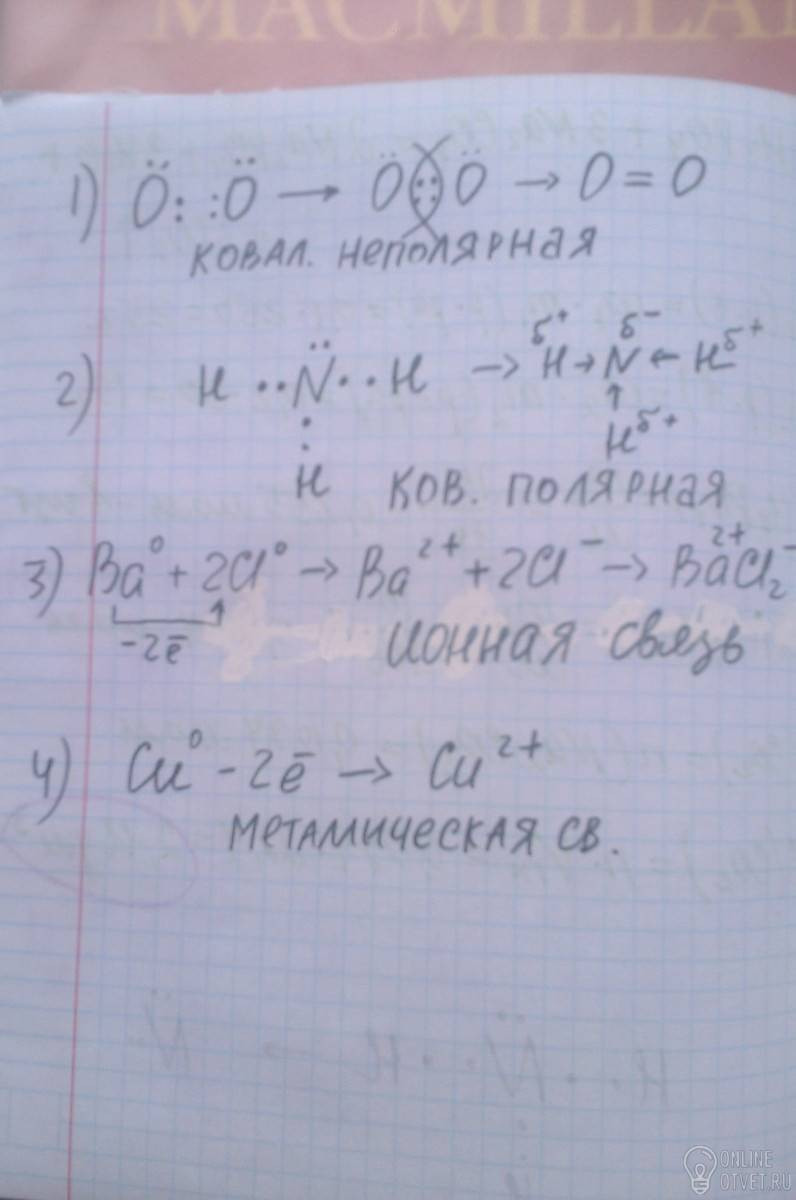 MACMILLAN
1) Ö: :Ö → Ö(::)Ö → O = O
ковал. неполярная
2) H ··N̈·· H → H^δ+ → N^δ- ← H^δ+
:
↑
H
H^δ+
ков. полярная
3) Ba⁰ + 2Cl⁰ → Ba²⁺ + 2Cl⁻ → Ba²⁺Cl₂⁻
-2ē
ионная связь
4) Cu⁰ - 2ē → Cu²⁺
металическая св.
ONLINE
OTVET.RU